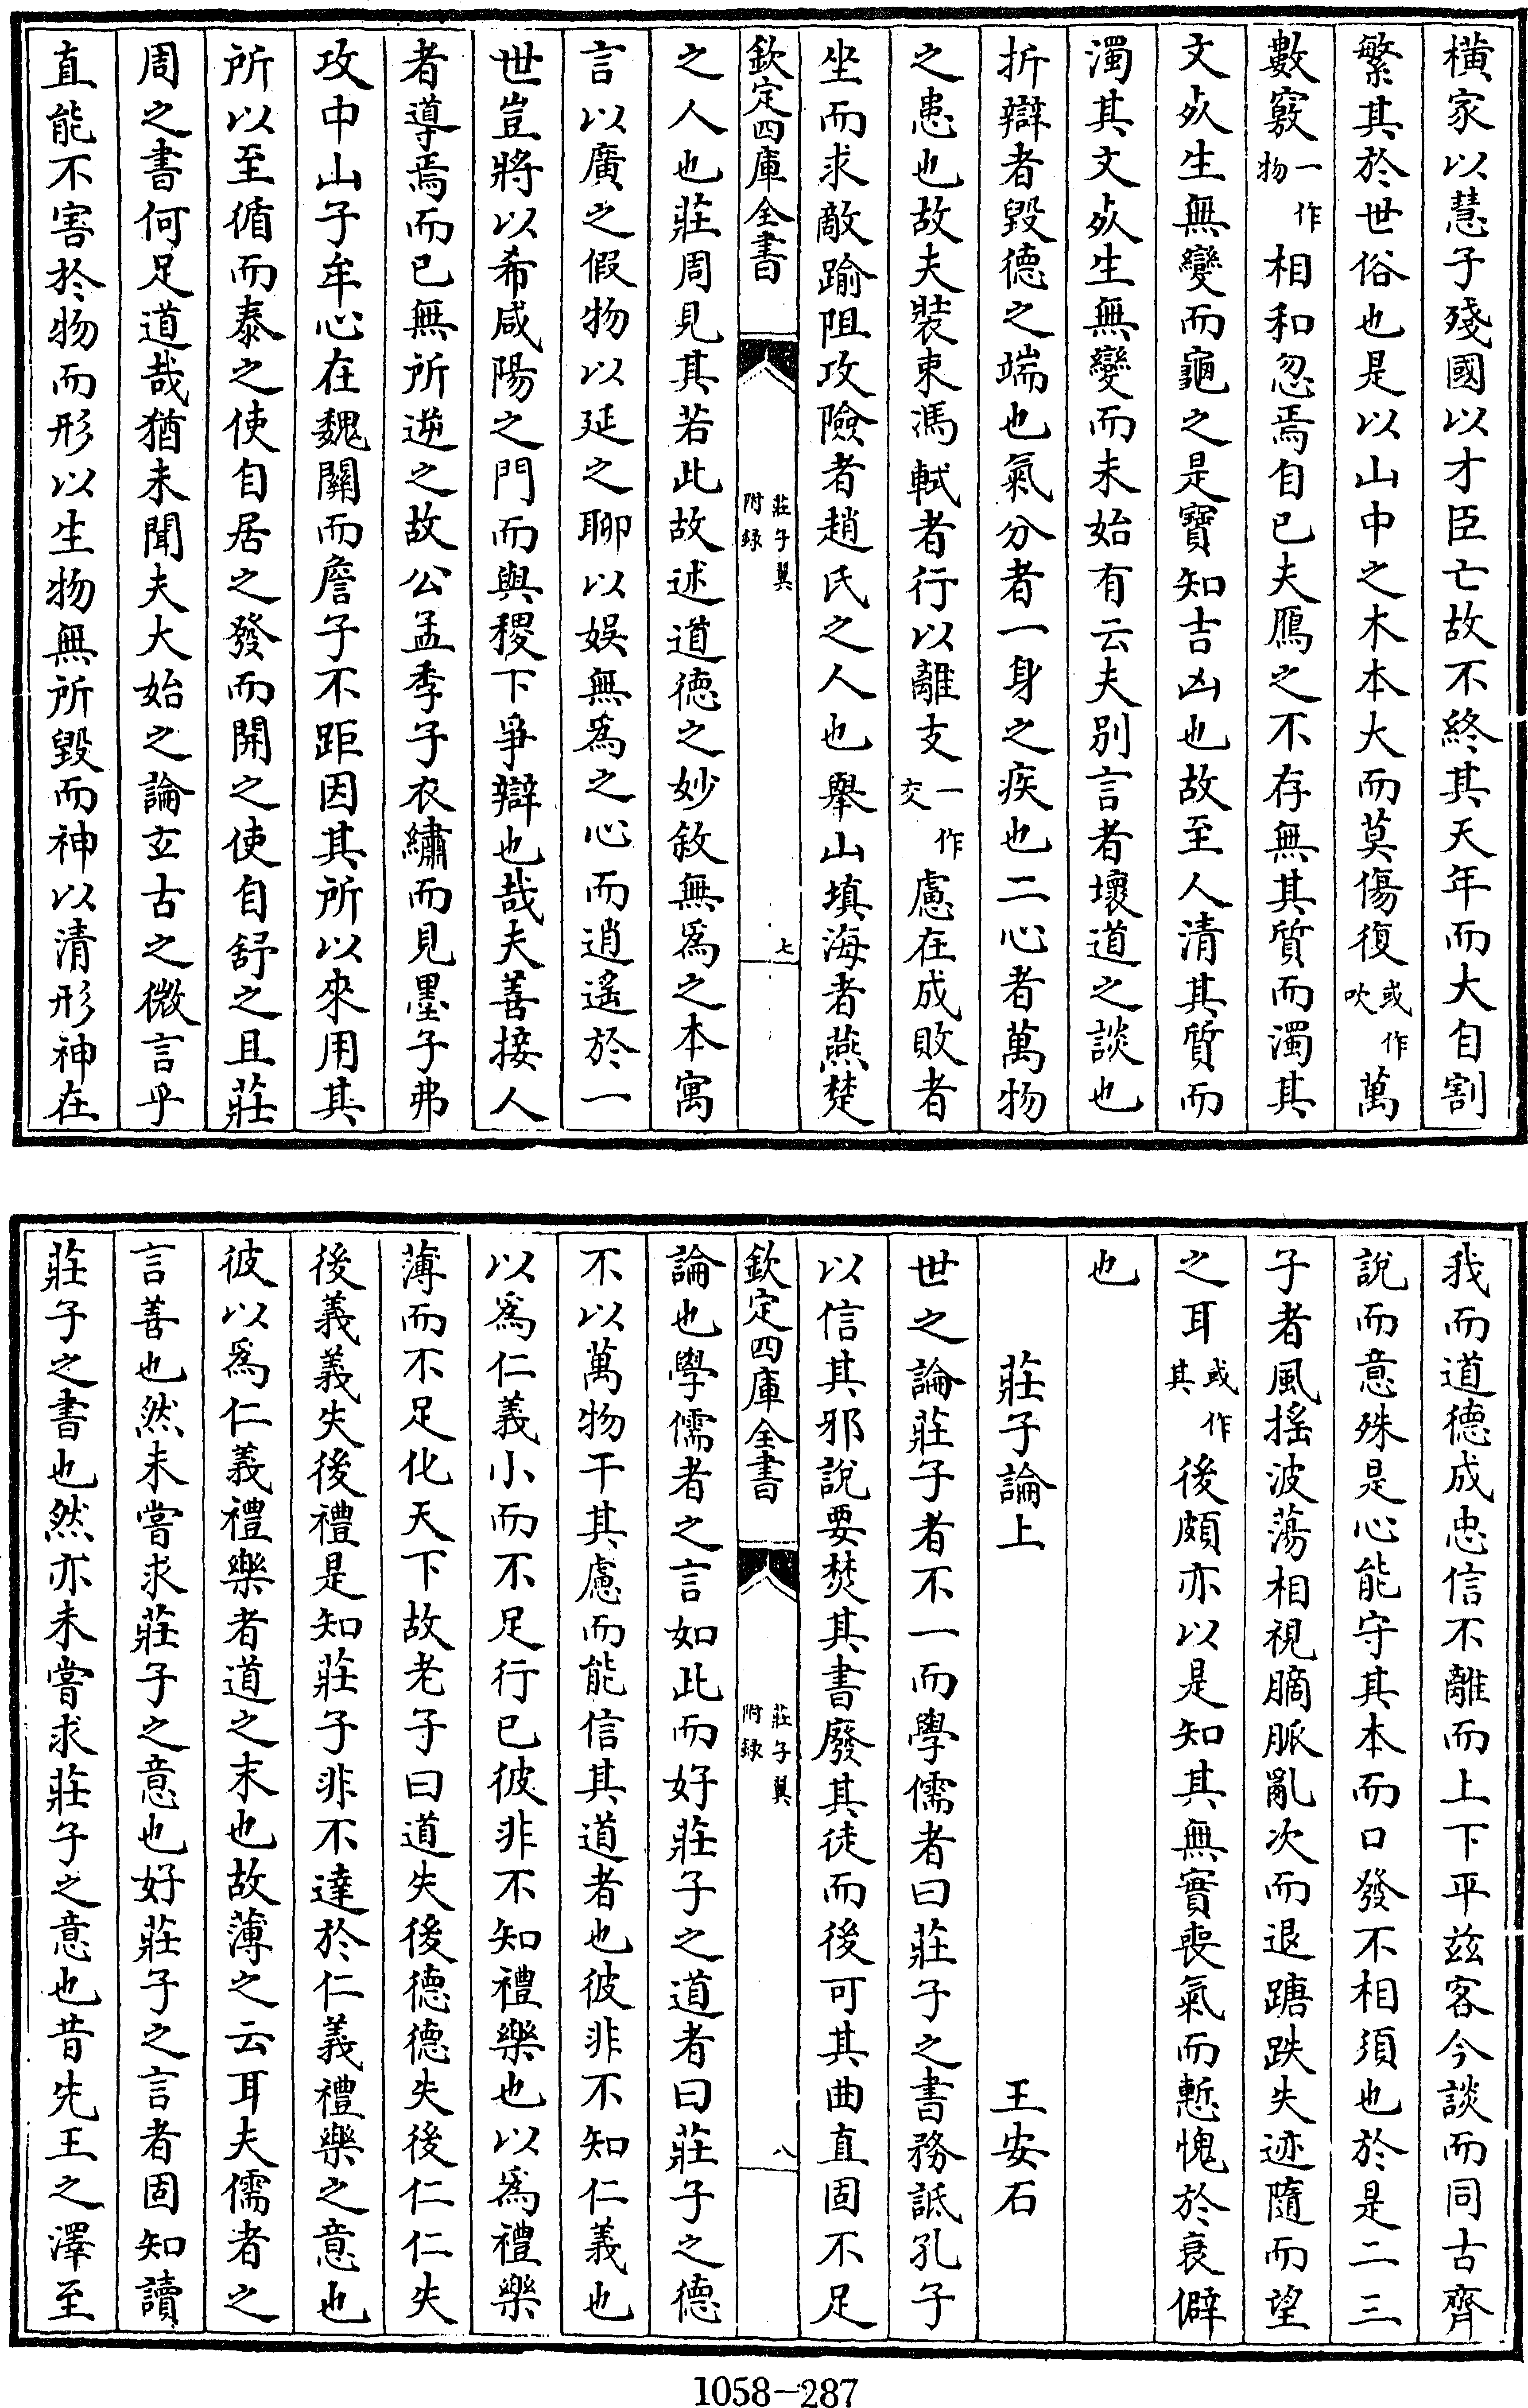 橫家以慧子殘國以才臣亡故不終其天年而大自割
繁其於世俗也是以山中之木本大而莫傷復或作吹萬
數竅一作物相和忽焉自已夫鴈之不存無其質而濁其
文死生無變而龜之是寶知吉凶也故至人清其質而
濁其文死生無變而未始有云夫別言者壞道之談也
折辯者毀德之端也氣分者一身之疾也二心者萬物
之患也故夫裝束馮軾者行以離支一作交慮在成敗者
坐而求敵踰阻攻險者趙氏之人也舉山填海者燕楚
欽定四庫全書
莊子翼附録
七
之人也莊周見其若此故述道德之妙敘無爲之本寓
言以廣之假物以延之聊以娛無爲之心而逍遙於一
世豈將以希咸陽之門而與稷下爭辯也哉夫善接人
者導焉而已無所逆之故公孟季子衣繡而見墨子弗
攻中山子牟心在魏闕而詹子不距因其所以來用其
所以至循而泰之使自居之發而開之使自舒之且莊
周之書何足道哉猶未聞夫大始之論立古之微言乎
直能不害於物而形以生物無所毀而神以清形神在
我而道德成忠信不離而上下平兹客今談而同古齊
說而意殊是心能守其本而口發不相須也於是二三
子者風搖波蕩相視䐱脈亂次而退踼跌失迹隨而望
之耳或作其後頗亦以是知其無實喪氣而慙愧於衰僻
也
莊子論上 王安石
世之論莊子者不一而學儒者曰莊子之書務詆孔子
以信其邪說要焚其書廢其徒而後可其曲直固不足
欽定四庫全書
莊子翼附録
八
論也學儒者之言如此而好莊子之道者曰莊子之德
不以萬物干其慮而能信其道者也彼非不知仁義也
以爲仁義小而不足行已彼非不知禮樂也以爲禮樂
薄而不足化天下故老子曰道失後德德失後仁仁失
後義義失後禮是知莊子非不達於仁義禮樂之意也
彼以爲仁義禮樂者道之末也故薄之云耳夫儒者之
言善也然未嘗求莊子之意也好莊子之言者固知讀
莊子之書也然亦未嘗求莊子之意也昔先王之澤至
1058-287